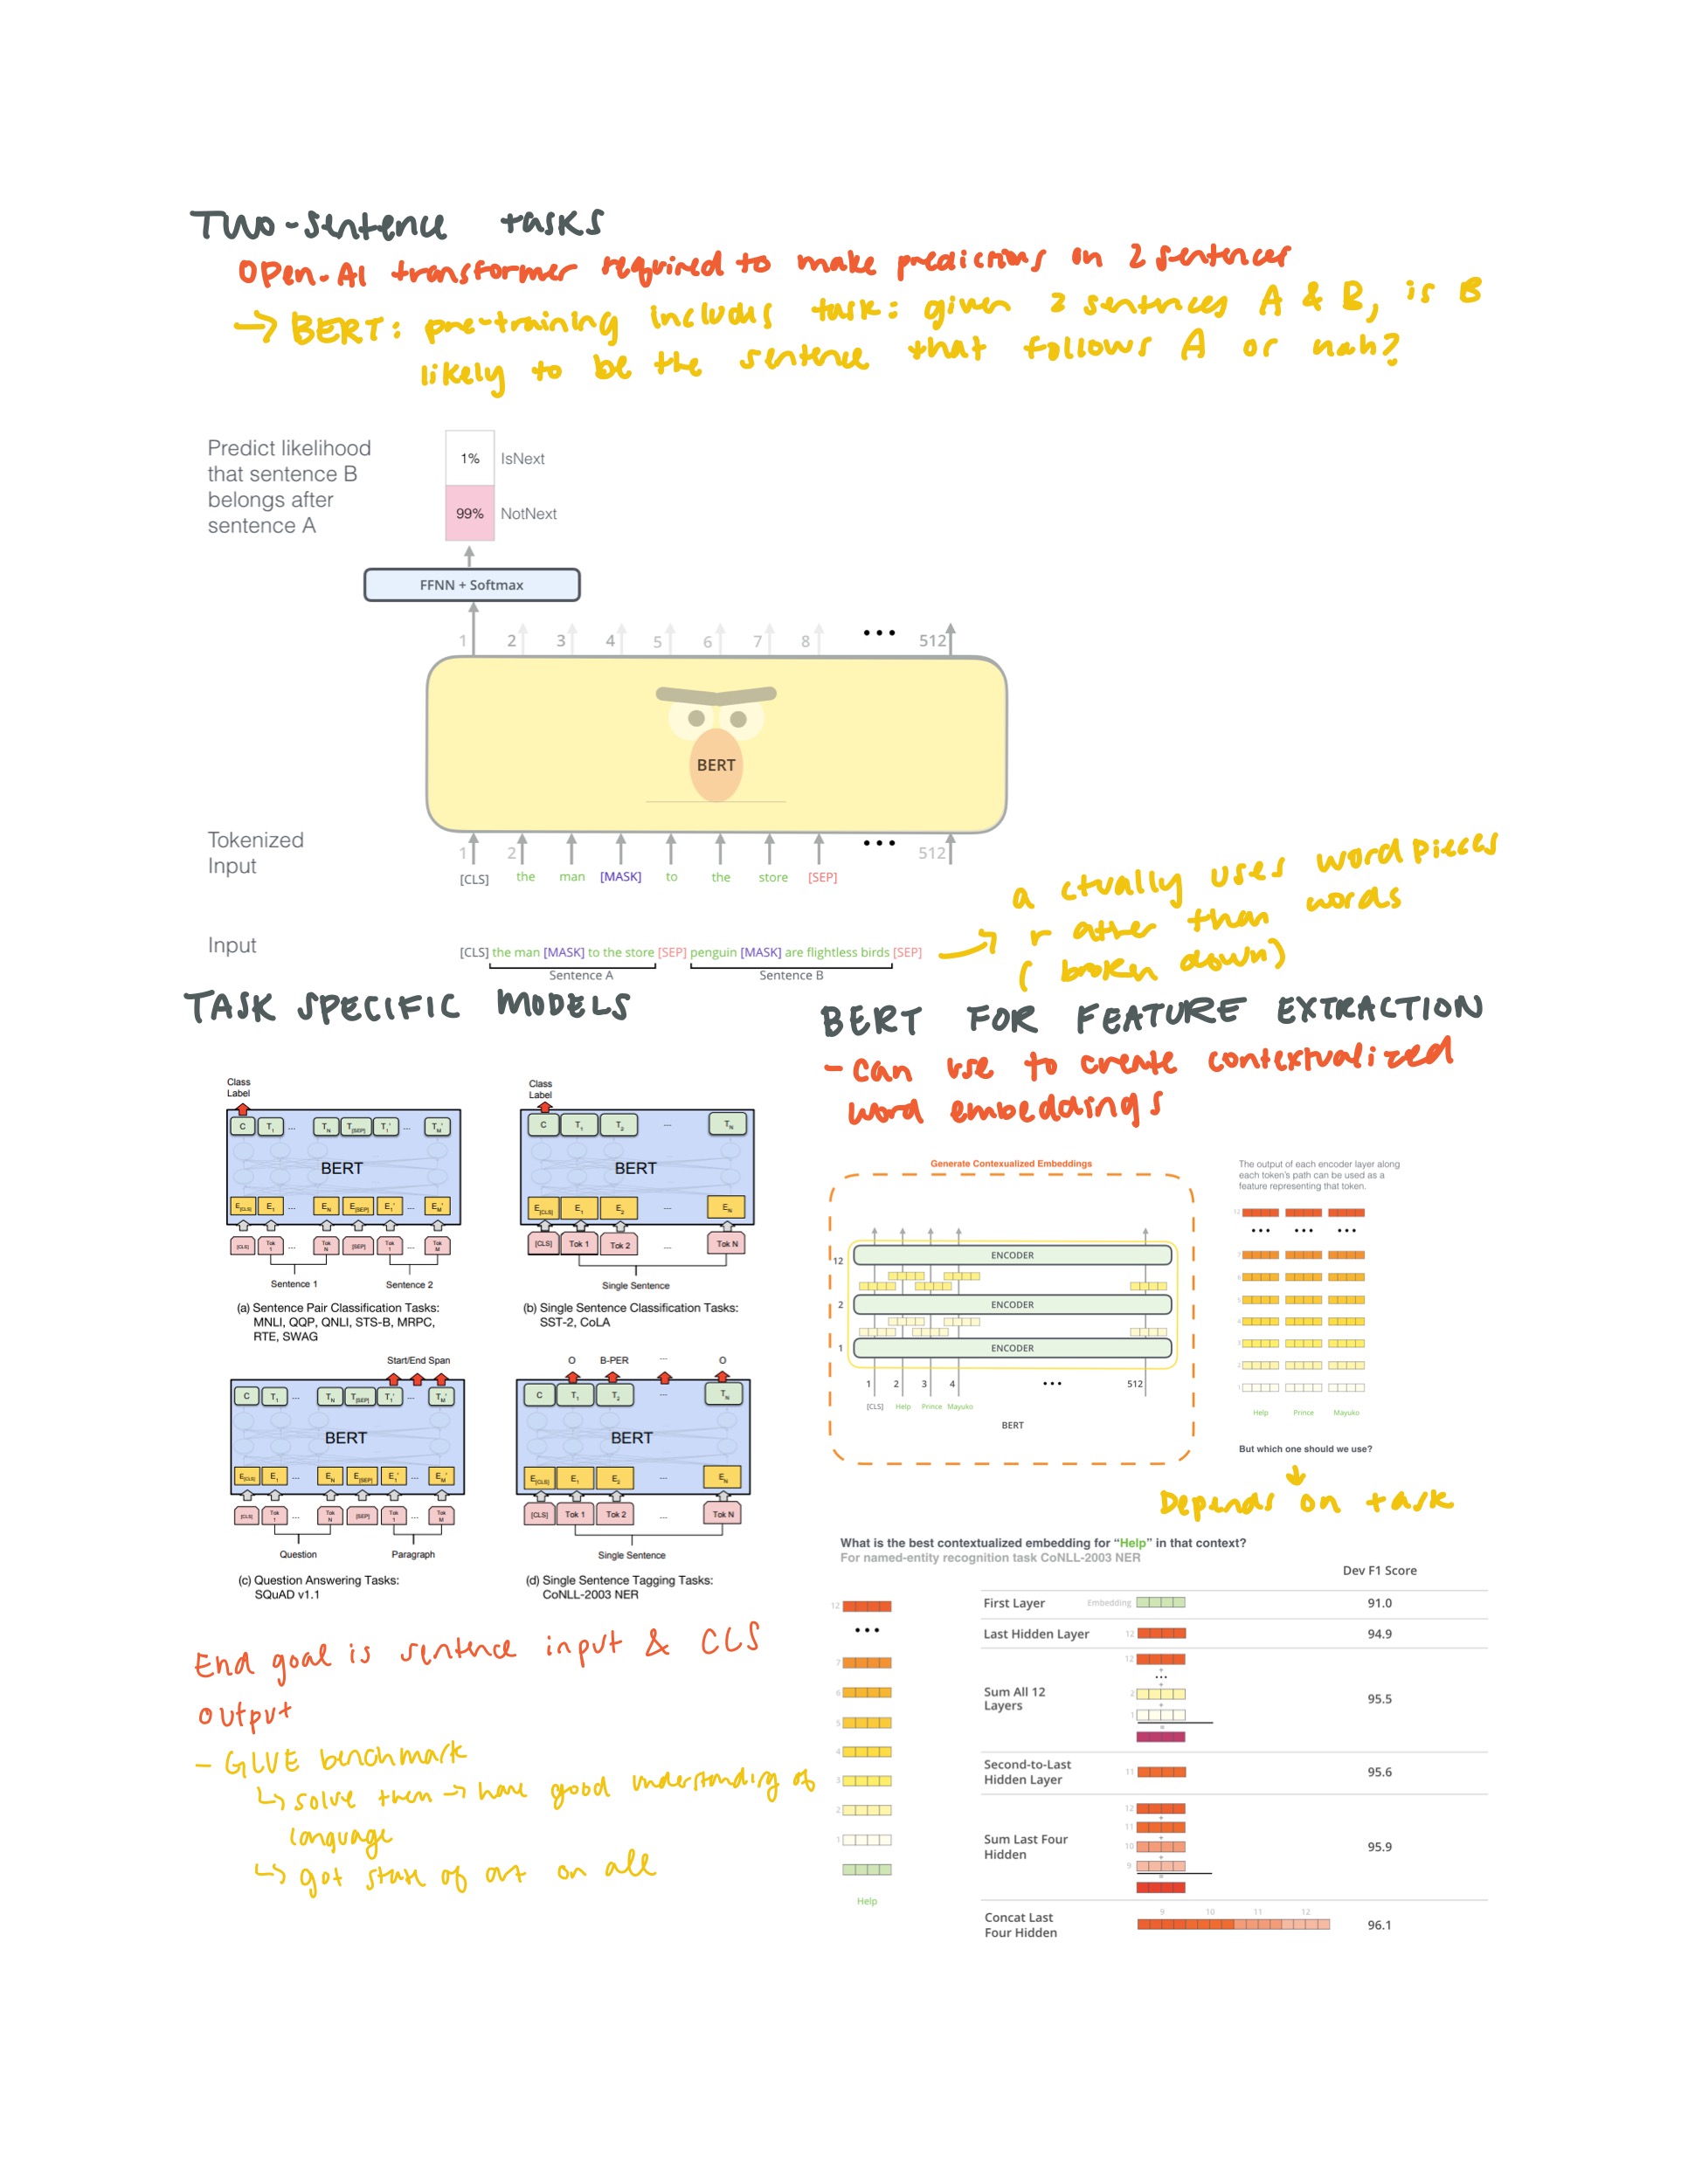 Two-Sentence tasks
Open-AI transformer required to make predictions on 2 sentences
→ BERT: pre-training includes task: given 2 sentences A & B, is B
likely to be the sentence that follows A or nah?
Predict likelihood
that sentence B
belongs after
sentence A
1% IsNext
99% NotNext
FFNN + Softmax
1 2 3 4 5 6 7 8 ••• 512
BERT
Tokenized
Input
1 2 ••• 512
[CLS] the man [MASK] to the store [SEP]
actually uses wordpieces
rather than words
(broken down)
Input
[CLS] the man [MASK] to the store [SEP] penguin [MASK] are flightless birds [SEP]
Sentence A Sentence B
TASK SPECIFIC MODELS
Class
Label
C T1 ... TN T[SEP] T1' ... TM'
BERT
E[CLS] E1 ... EN E[SEP] E1' ... EM'
[CLS] Tok 1 ... Tok N [SEP] Tok 1 ... Tok M
Sentence 1 Sentence 2
(a) Sentence Pair Classification Tasks:
MNLI, QQP, QNLI, STS-B, MRPC,
RTE, SWAG
Class
Label
C T1 T2 ... TN
BERT
E[CLS] E1 E2 ... EN
[CLS] Tok 1 Tok 2 ... Tok N
Single Sentence
(b) Single Sentence Classification Tasks:
SST-2, CoLA
Start/End Span
C T1 ... TN T[SEP] T1' ... TM'
BERT
E[CLS] E1 ... EN E[SEP] E1' ... EM'
[CLS] Tok 1 ... Tok N [SEP] Tok 1 ... Tok M
Question Paragraph
(c) Question Answering Tasks:
SQuAD v1.1
O B-PER ... O
C T1 T2 ... TN
BERT
E[CLS] E1 E2 ... EN
[CLS] Tok 1 Tok 2 ... Tok N
Single Sentence
(d) Single Sentence Tagging Tasks:
CoNLL-2003 NER
End goal is sentence input & CLS
output
- GLUE benchmark
↳ solve them → have good understanding of
language
↳ got state of art on all
BERT FOR FEATURE EXTRACTION
- can use to create contextualized
word embeddings
Generate Contexualized Embeddings
12 ENCODER
2 ENCODER
1 ENCODER
1 2 3 4 ••• 512
[CLS] Help Prince Mayuko
BERT
The output of each encoder layer along
each token's path can be used as a
feature representing that token.
12
••• ••• •••
7
6
5
4
3
2
1
Help Prince Mayuko
But which one should we use?
Depends on task
What is the best contextualized embedding for "Help" in that context?
For named-entity recognition task CoNLL-2003 NER
Dev F1 Score
12
•••
7
6
5
4
3
2
1
Help
First Layer Embedding 91.0
Last Hidden Layer 12 94.9
Sum All 12
Layers
12
+
...
+
2
+
1
=
95.5
Second-to-Last
Hidden Layer
11 95.6
Sum Last Four
Hidden
12
+
11
+
10
+
9
=
95.9
Concat Last
Four Hidden
9 10 11 12
96.1